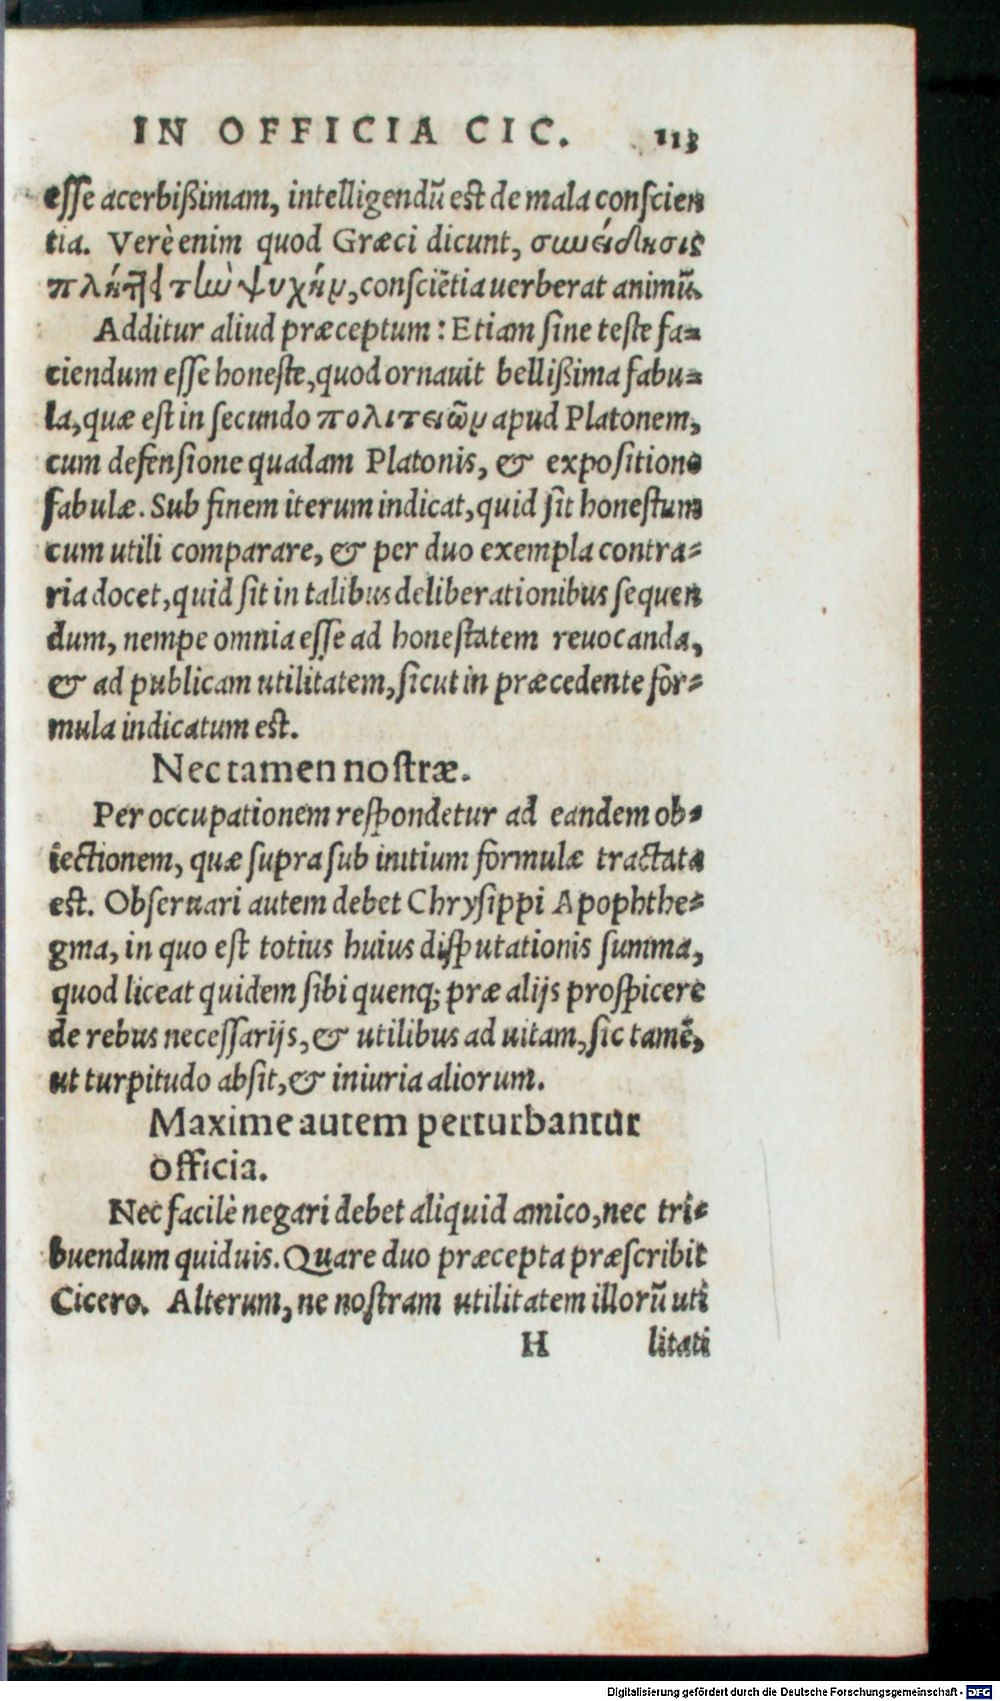 IN OFFICIA CIC. 113
esse acerbißimam, intelligendũ est de mala conscien
tia. Verè enim quod Græci dicunt, συνείδησις
πλήτ‌τει τὴν ψυχήν, consciẽtia uerberat animũ.
Additur aliud præceptum: Etiam sine teste fa=
ciendum esse honeste, quod ornauit bellißima fabu=
la, quæ est in secundo πολιτειῶν apud Platonem,
cum defensione quadam Platonis, & expositione
fabulæ. Sub finem iterum indicat, quid sit honestum
cum utili comparare, & per duo exempla contra=
ria docet, quid sit in talibus deliberationibus sequen
dum, nempe omnia esse ad honestatem reuocanda,
& ad publicam utilitatem, sicut in præcedente for=
mula indicatum est.
Nec tamen nostræ.
Per occupationem respondetur ad eandem ob=
iectionem, quæ supra sub initium formulæ tractata
est. Obseruari autem debet Chrysippi Apophthe=
gma, in quo est totius huius disputationis summa,
quod liceat quidem sibi quenq; præ alijs prospicere
de rebus necessarijs, & utilibus ad uitam, sic tamẽ,
ut turpitudo absit, & iniuria aliorum.
Maxime autem perturbantur
officia.
Nec facilè negari debet aliquid amico, nec tri=
buendum quiduis. Quare duo præcepta præscribit
Cicero. Alterum, ne nostram utilitatem illorũ uti
H litati
Digitalisierung gefördert durch die Deutsche Forschungsgemeinschaft - DFG